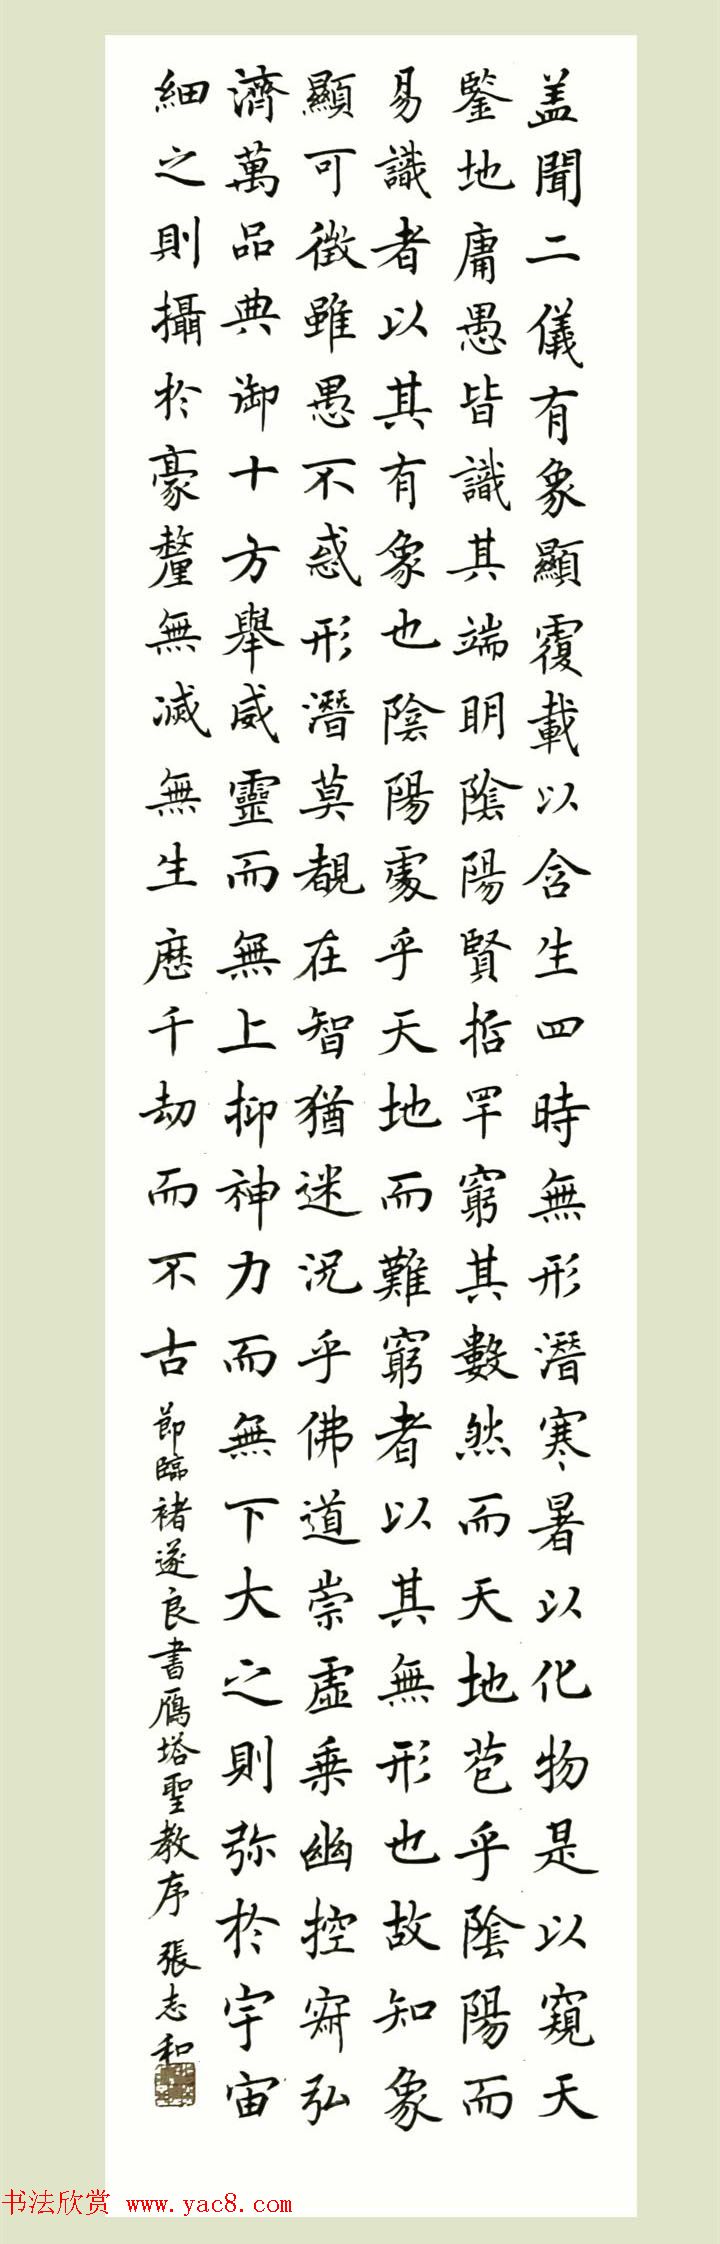 盖聞二儀有象顯覆載以含生四時無形潛寒暑以化物是以窺天
鑒地庸愚皆識其端明陰陽賢哲罕窮其數然而天地苞乎陰陽而
易識者以其有象也陰陽處乎天地而難窮者以其無形也故知象
顯可徵雖愚不惑形潛莫覩在智猶迷況乎佛道崇虛乗幽控寂弘
濟萬品典御十方舉威靈而無上抑神力而無下大之則弥於宇宙
細之則攝於豪釐無滅無生歷千劫而不古
節臨褚遂良書雁塔聖教序 張志和
书法欣赏 www.yac8.com